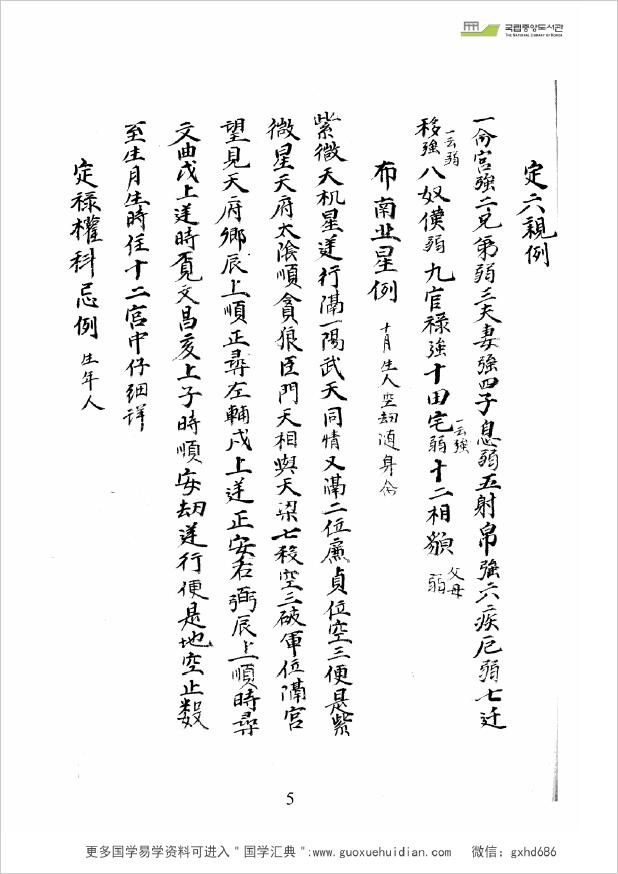 국립중앙도서관
THE NATIONAL LIBRARY OF KOREA
定六親例
一命宮強二兄弟弱三夫妻強四子息弱五射帛強六疾厄弱七迁
移強一云弱八奴僕弱九官禄強十田宅弱一云強十二相貌父母弱
布南北星例 十月生人空劫随身命
紫微天机星逆行隔一陽武天同情又隔二位廉貞位空三便是紫
微星天府太陰順貪狼巨門天相與天梁七殺空三破軍位隔宮
望見天府鄉辰上順正尋左輔戌上逆正安右弼辰上順時尋
文曲戌上逆時覓文昌亥上子時順安劫逆行便是地空止数
至生月生時住十二宫中仔细详
定禄權科忌例 生年人
5
更多国学易学资料可进入＂国学汇典＂:www.guoxuehuidian.com 微信：gxhd686